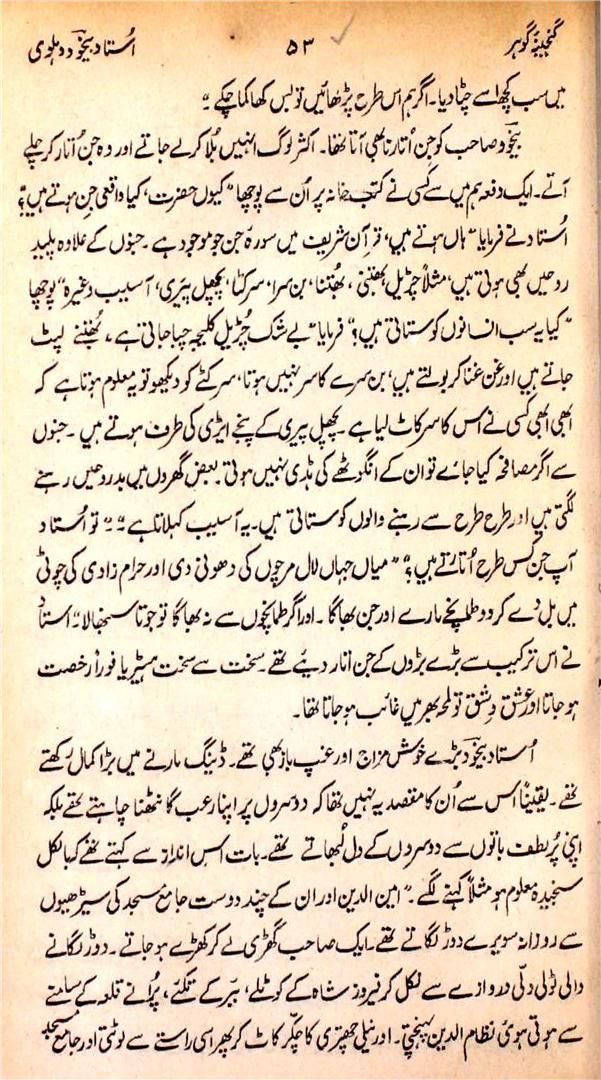 گنجینۂ گوہر ۵۳ اُستاد بیخود دہلوی
میں سب کچھ اسے چٹا دیا۔ اگر ہم اس طرح پڑھائیں تو بس کھا کما چکے ؔ"
بیخود صاحب کو جن اُتارنا بھی آتا تھا۔ اکثر لوگ انہیں بُلا کر لے جاتے اور وہ جن اُتار کر چلے
آتے۔ ایک دفعہ ہم میں سے کسی نے کتب خانہ پر اُن سے پوچھا "کیوں حضرت، کیا واقعی جن ہوتے ہیں؟"
اُستاد نے فرمایا "ہاں ہوتے ہیں، قرآن شریف میں سورۂ جن جو موجود ہے۔ جنوں کے علاوہ پلید
روحیں بھی ہوتی ہیں، مثلاً چڑیل، بھتنی، بھُتنا، بن سرا، سر کٹا، پچھل پیری، آسیب وغیرہ" پوچھا
"کیا یہ سب انسانوں کو ستاتی ہیں؟" فرمایا "بے شک چڑیل کلیجہ چبا جاتی ہے، بھُتنے لپٹ
جاتے ہیں اور غن غنا کر بولتے ہیں، بن سرے کا سر نہیں ہوتا، سر کٹے کو دیکھو تو یہ معلوم ہوتا ہے کہ
ابھی ابھی کسی نے اس کا سر کاٹ لیا ہے۔ پچھل پیری کے پنجے ایڑی کی طرف ہوتے ہیں۔ جنوں
سے اگر مصافحہ کیا جائے تو ان کے انگوٹھے کی ہڈی نہیں ہوتی۔ بعض گھروں میں بدروحیں رہنے
لگتی ہیں اور طرح طرح سے رہنے والوں کو ستاتی ہیں۔ یہ آسیب کہلاتا ہے" "تو اُستاد
آپ جن کس طرح اُتارتے ہیں؟" "میاں جہاں لال مرچوں کی دھونی دی اور حرام زادی کی چوٹی
میں بل دے کر دو طمانچے مارے اور جن بھاگا۔ اور اگر طمانچوں سے نہ بھاگا تو جوتا سنبھالا" استاد
نے اس ترکیب سے بڑے بڑوں کے جن اتار دیئے تھے۔ سخت سے سخت ہسٹیریا فوراً رخصت
ہو جاتا اور عشق وِشق تو لمحہ بھر میں غائب ہو جاتا تھا۔
اُستاد بیخود بڑے خوش مزاج اور غپ باز بھی تھے۔ ڈینگ مارنے میں بڑا کمال رکھتے
تھے۔ یقیناً اس سے اُن کا مقصد یہ نہیں تھا کہ دوسروں پر اپنا رعب گانٹھنا چاہتے تھے بلکہ
اپنی پُر لطف باتوں سے دوسروں کے دل لُبھاتے تھے۔ بات اس انداز سے کہتے تھے کہ بالکل
سنجیدہ معلوم ہو مثلاً کہنے لگے۔ "امین الدین اور ان کے چند دوست جامع مسجد کی سیڑھیوں
سے روزانہ سویرے دوڑ لگاتے تھے۔ ایک صاحب گھڑی لے کر کھڑے ہو جاتے۔ دوڑ لگانے
والی ٹولی دلّی دروازے سے نکل کر فیروز شاہ کے کوٹلے، ببّر کے تکئے، پُرانے قلعہ کے سامنے
سے ہوتی ہوئی نظام الدین پہنچتی۔ اور نیلی چھتری کا چکّر کاٹ کر پھر اسی راستے سے لوٹتی اور جامع مسجد